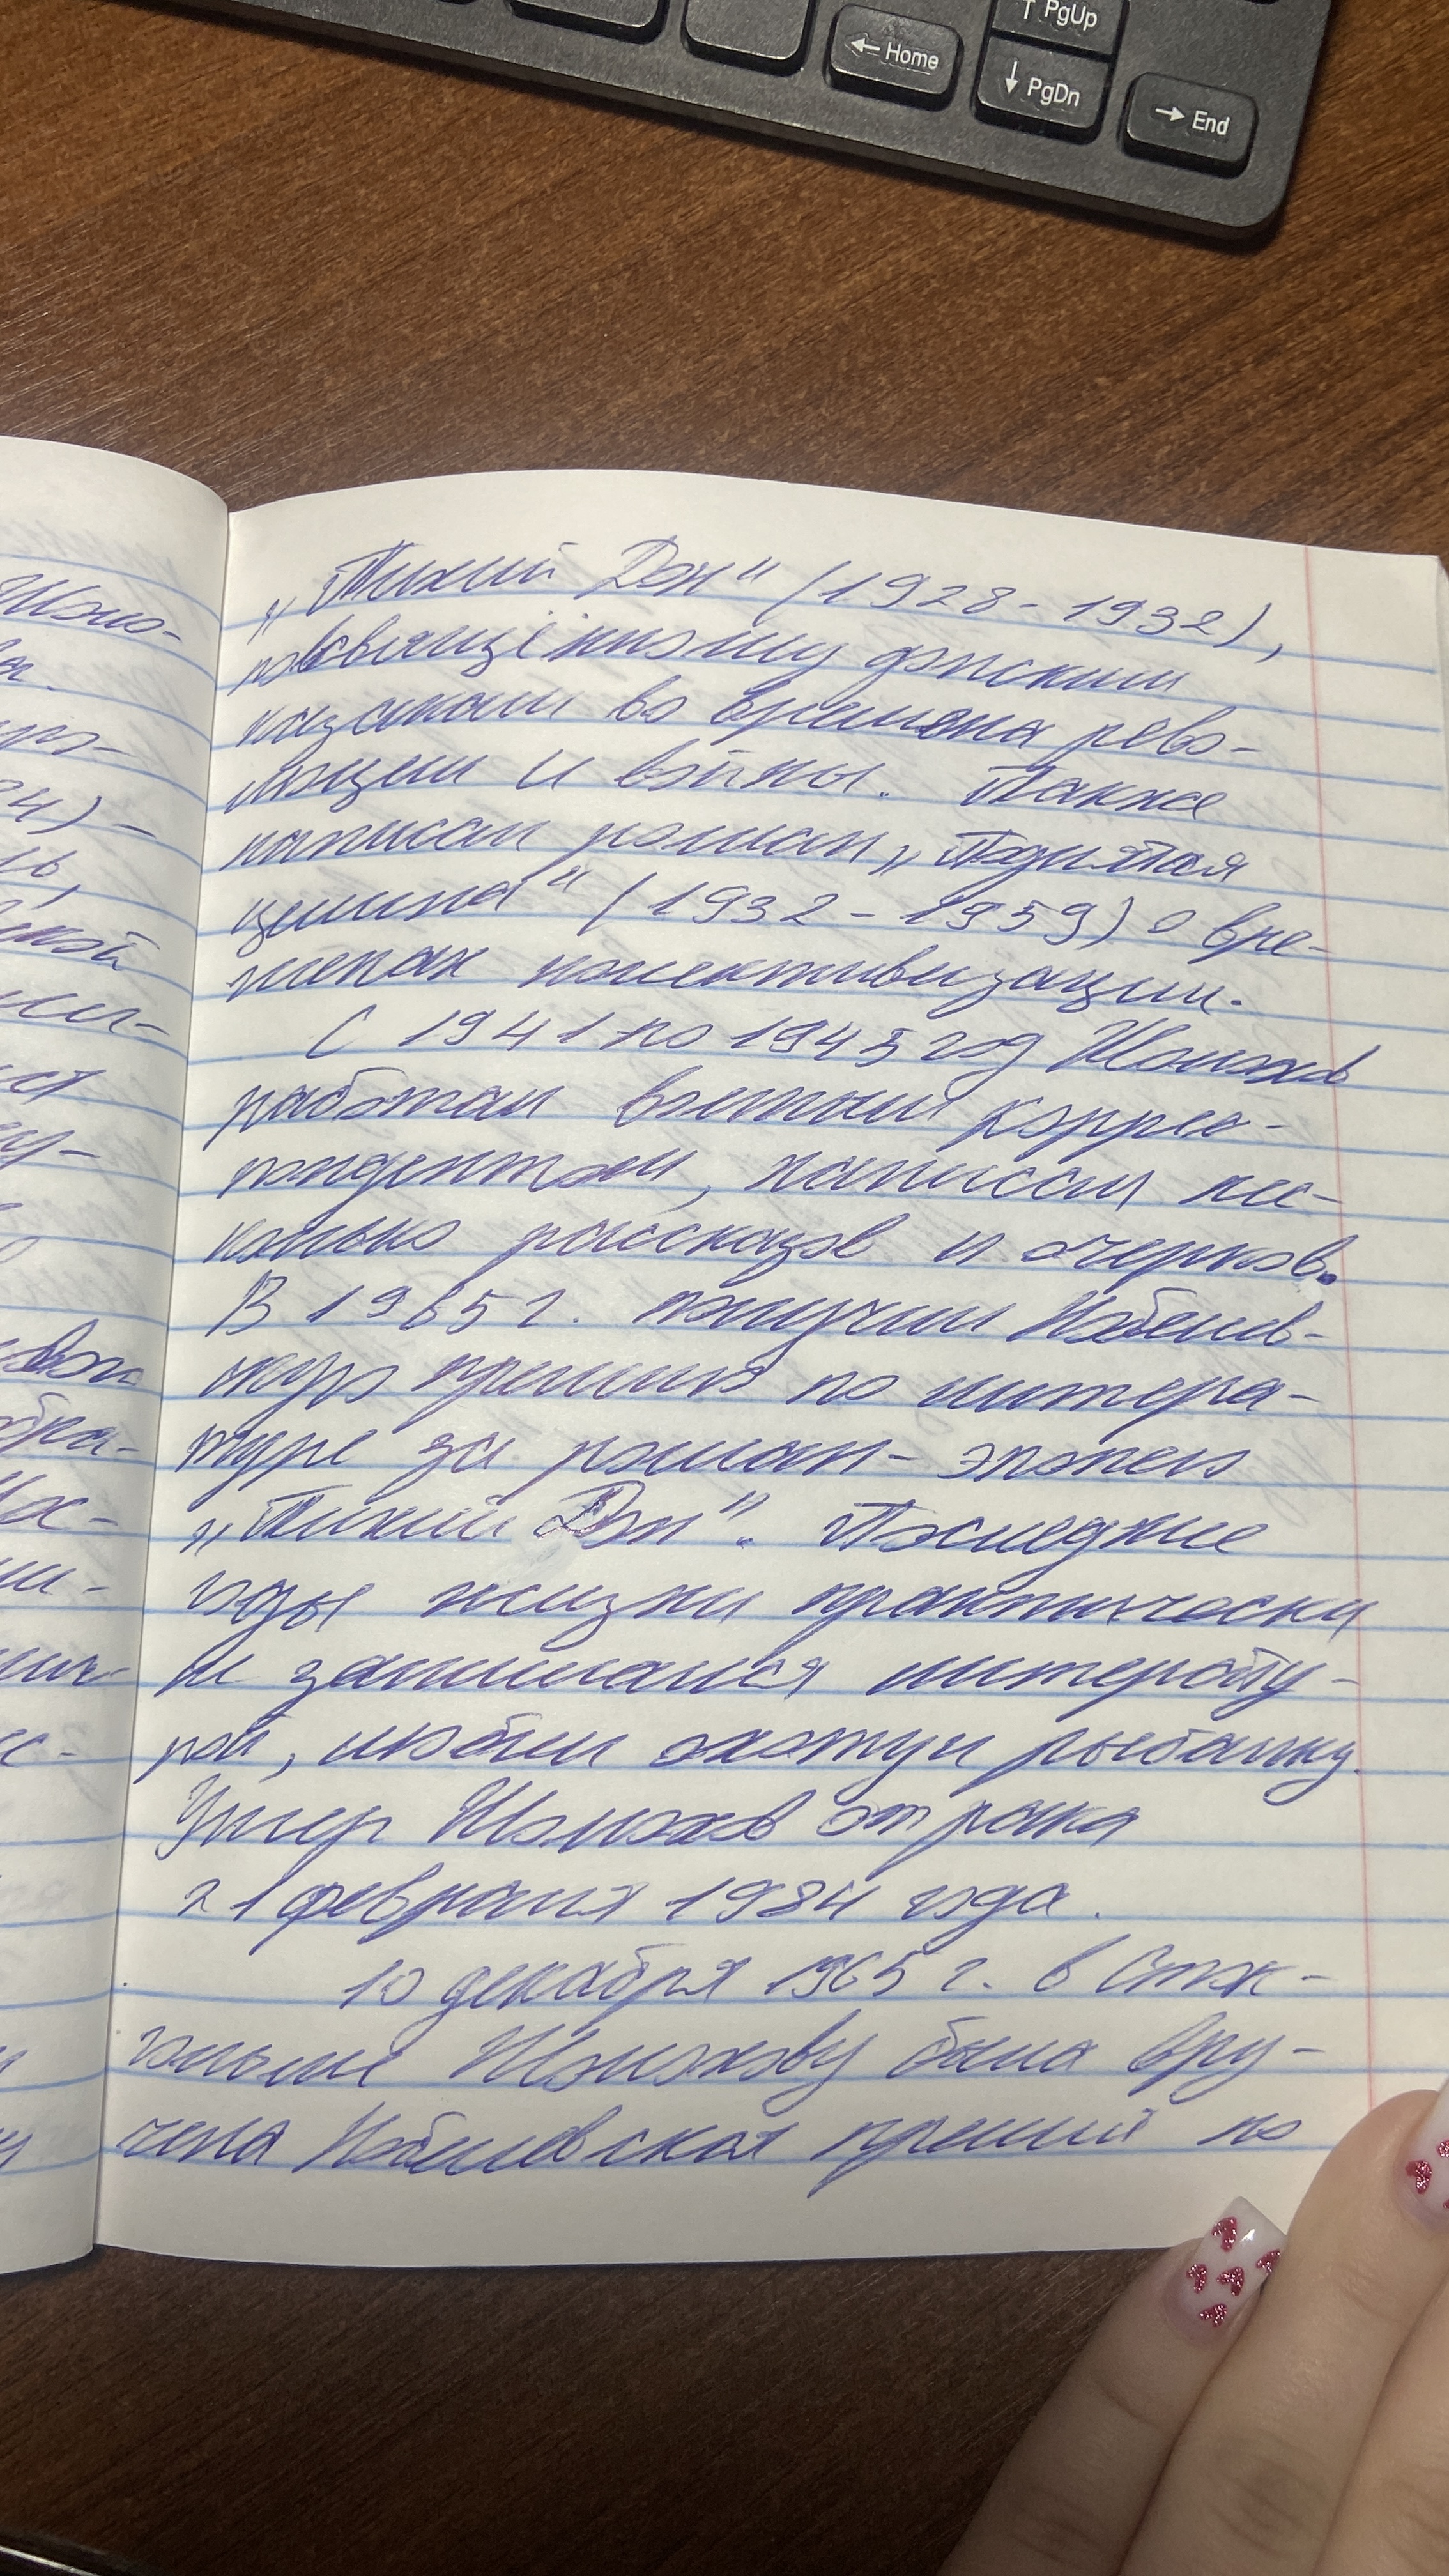 ↑ PgUp
← Home
↓ PgDn
→ End
„Тихий Дон“ (1928-1932),
посвящённому донским
казакам во времена рево-
люции и войны. Также
написал роман „Поднятая
целина“ (1932-1959) о вре-
менах коллективизации.
С 1941 по 1945 год Шолохов
работал военным коррес-
пондентом, написал нес-
колько рассказов и очерков.
В 1965 г. получил Нобелев-
скую премию по литера-
туре за роман-эпопею
„Тихий Дон“. Последние
годы жизни практически
не занимался литерату-
рой, любил охоту и рыбалку.
Умер Шолохов от рака
21 февраля 1984 года.
10 декабря 1965 г. в Сток-
гольме Шолохову была вру-
чена Нобелевская премия по